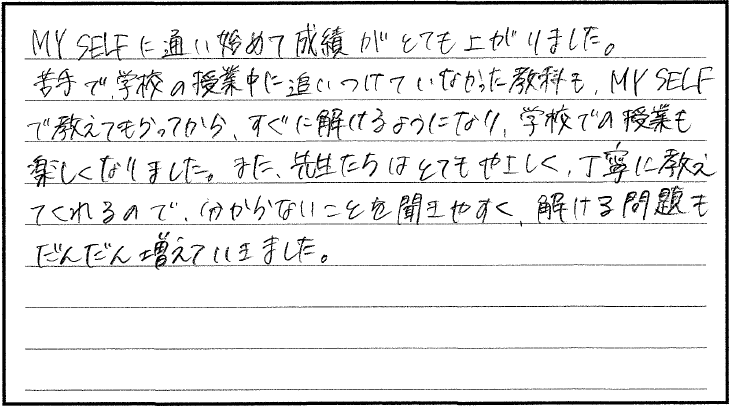 MY SELFに通い始めて成績がとても上がりました。
苦手で、学校の授業中に追いつけていなかった教科も、MY SELF
で教えてもらってから、すぐに解けるようになり、学校での授業も
楽しくなりました。また、先生たちはとてもやさしく、丁寧に教え
てくれるので、分からないことを聞きやすく、解ける問題も
だんだん増えていきました。